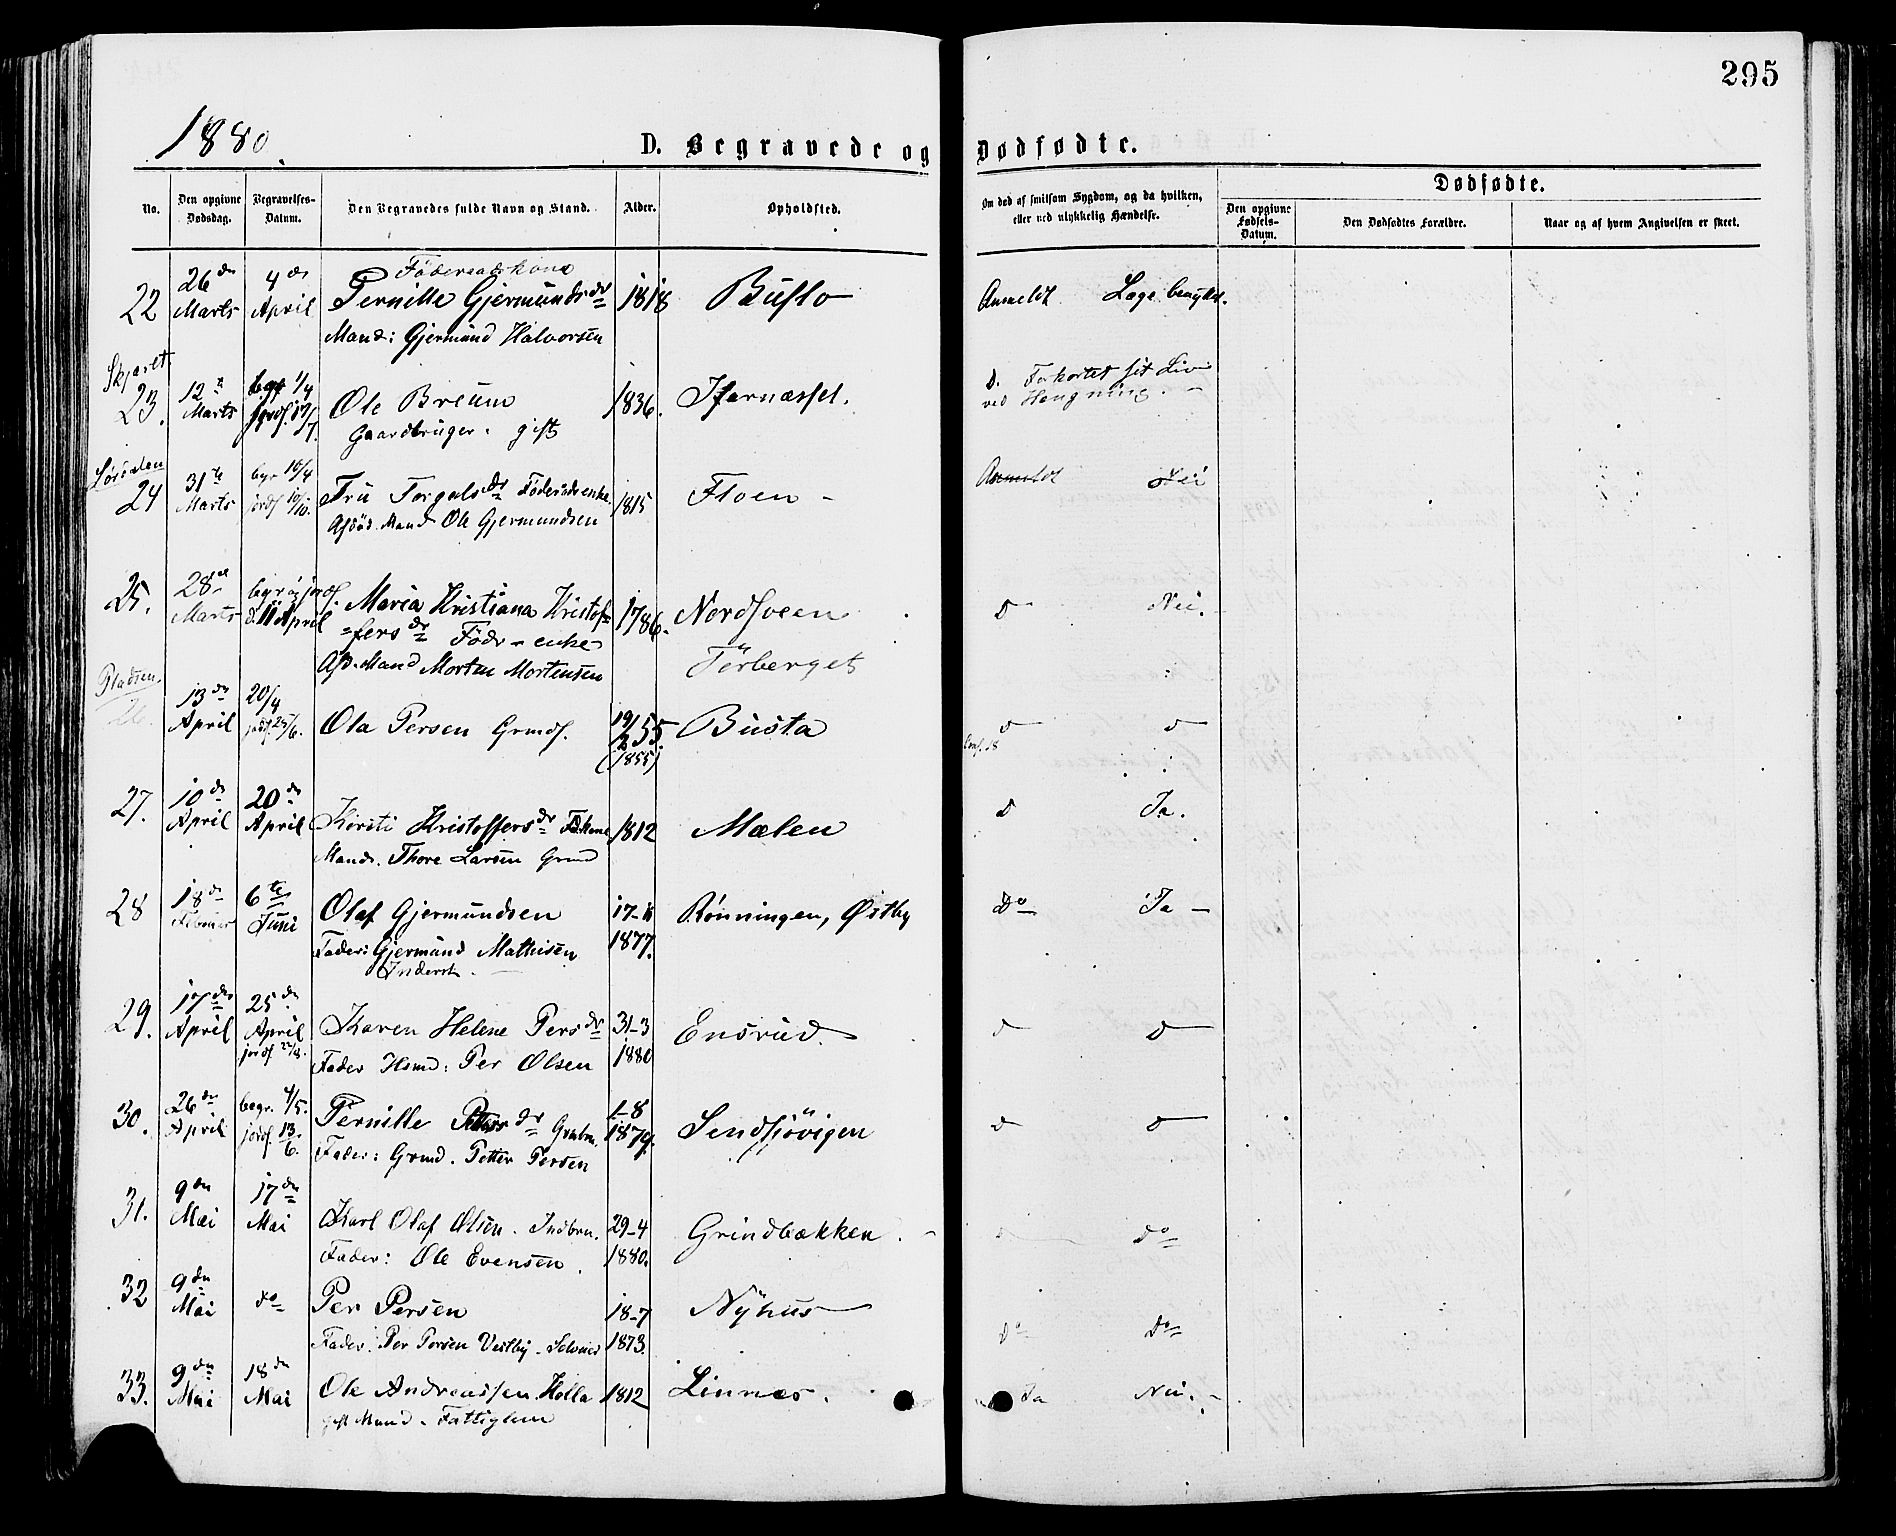 295
1880.
D. Begravede og Dødfødte.
No.
Den opgivne Dødsdag.
Begravelses-Datum.
Den Begravedes fulde Navn og Stand.
Alder.
Opholdsted.
Om død af smitsom Sygdom, og da hvilken,
eller ved ulykkelig Hændelse.
Dødfødte.
Den opgivne Fødsels-Datum.
Den Dødfødtes Forældre.
Naar og af hvem Angivelsen er skeet.
Föderaadskone
22 26de Marts 4de April Pernille Gjermundsdr 1818 Buflo Anmeldt Læge benyttet.
Mand: Gjermund Halvorsen
Skjæret
23. 12te Marts begr 1/4 jordf. 17/7. Ole Breum 1836. Jarnæsset. D. Forkortet sit Liv
Gaardbruger. gift ved Hængning.
Lördalen
24 31te Marts begr 10/4 jordf 10/10. Fru Torgalsdr Föderaadsenke. 1815 Floen Anmeldt Nei
Afdöd Mand Ole Gjermundsen
25. 28de Marts begr og jordf d. 11 April Maria Kristiana Kristof= 1786. Nordsveen D Nei.
=fersdr Föder-enke Törberget
Afd. Mand Morten Mortensen
Pladsen
26. 13de April 20/4 jordf. 29/6. Ola Persen Grmdf. 19/2 55. Busta D D
(1855) Conf. 18
27. 10de April 20de April Kirsti Kristoffersdr Fdkone 1812 Mælen D Ja.
Mand. Thore Larsen Grmd
28 18de Februar 6te Juni Olaf Gjermundsen 17-11 Rønningen, Østby Do Ja
Fader: Gjermund Mathisen 1877.
Inderst
29. 17de April 25de April Karen Helene Persdr 31-3 Ensrud. D D
jordf 22/8. Fader Hsmd: Per Olsen 1880
30. 26de April begr. 4/5. Pernille Pettersdr Grmbrn. 1-8 Sendsjövigen D D
jordf 13/6. Fader: Grmd. Petter Persen 1879.
31. 9de Mai 17de Mai Karl Olaf Olsen. Indbrn. 29-4 Grindbækken. Do
Fader: Ole Evensen. 1880.
32 9de Mai do Per Persen 18-7 Nÿhus Do Do
Fader: Per Persen Vestby - Selveier 1873.
33. 9de Mai 18de Mai Ole Andreassen Holla 1812 Linnes. Ja Nei.
gift Mand. Fattiglem